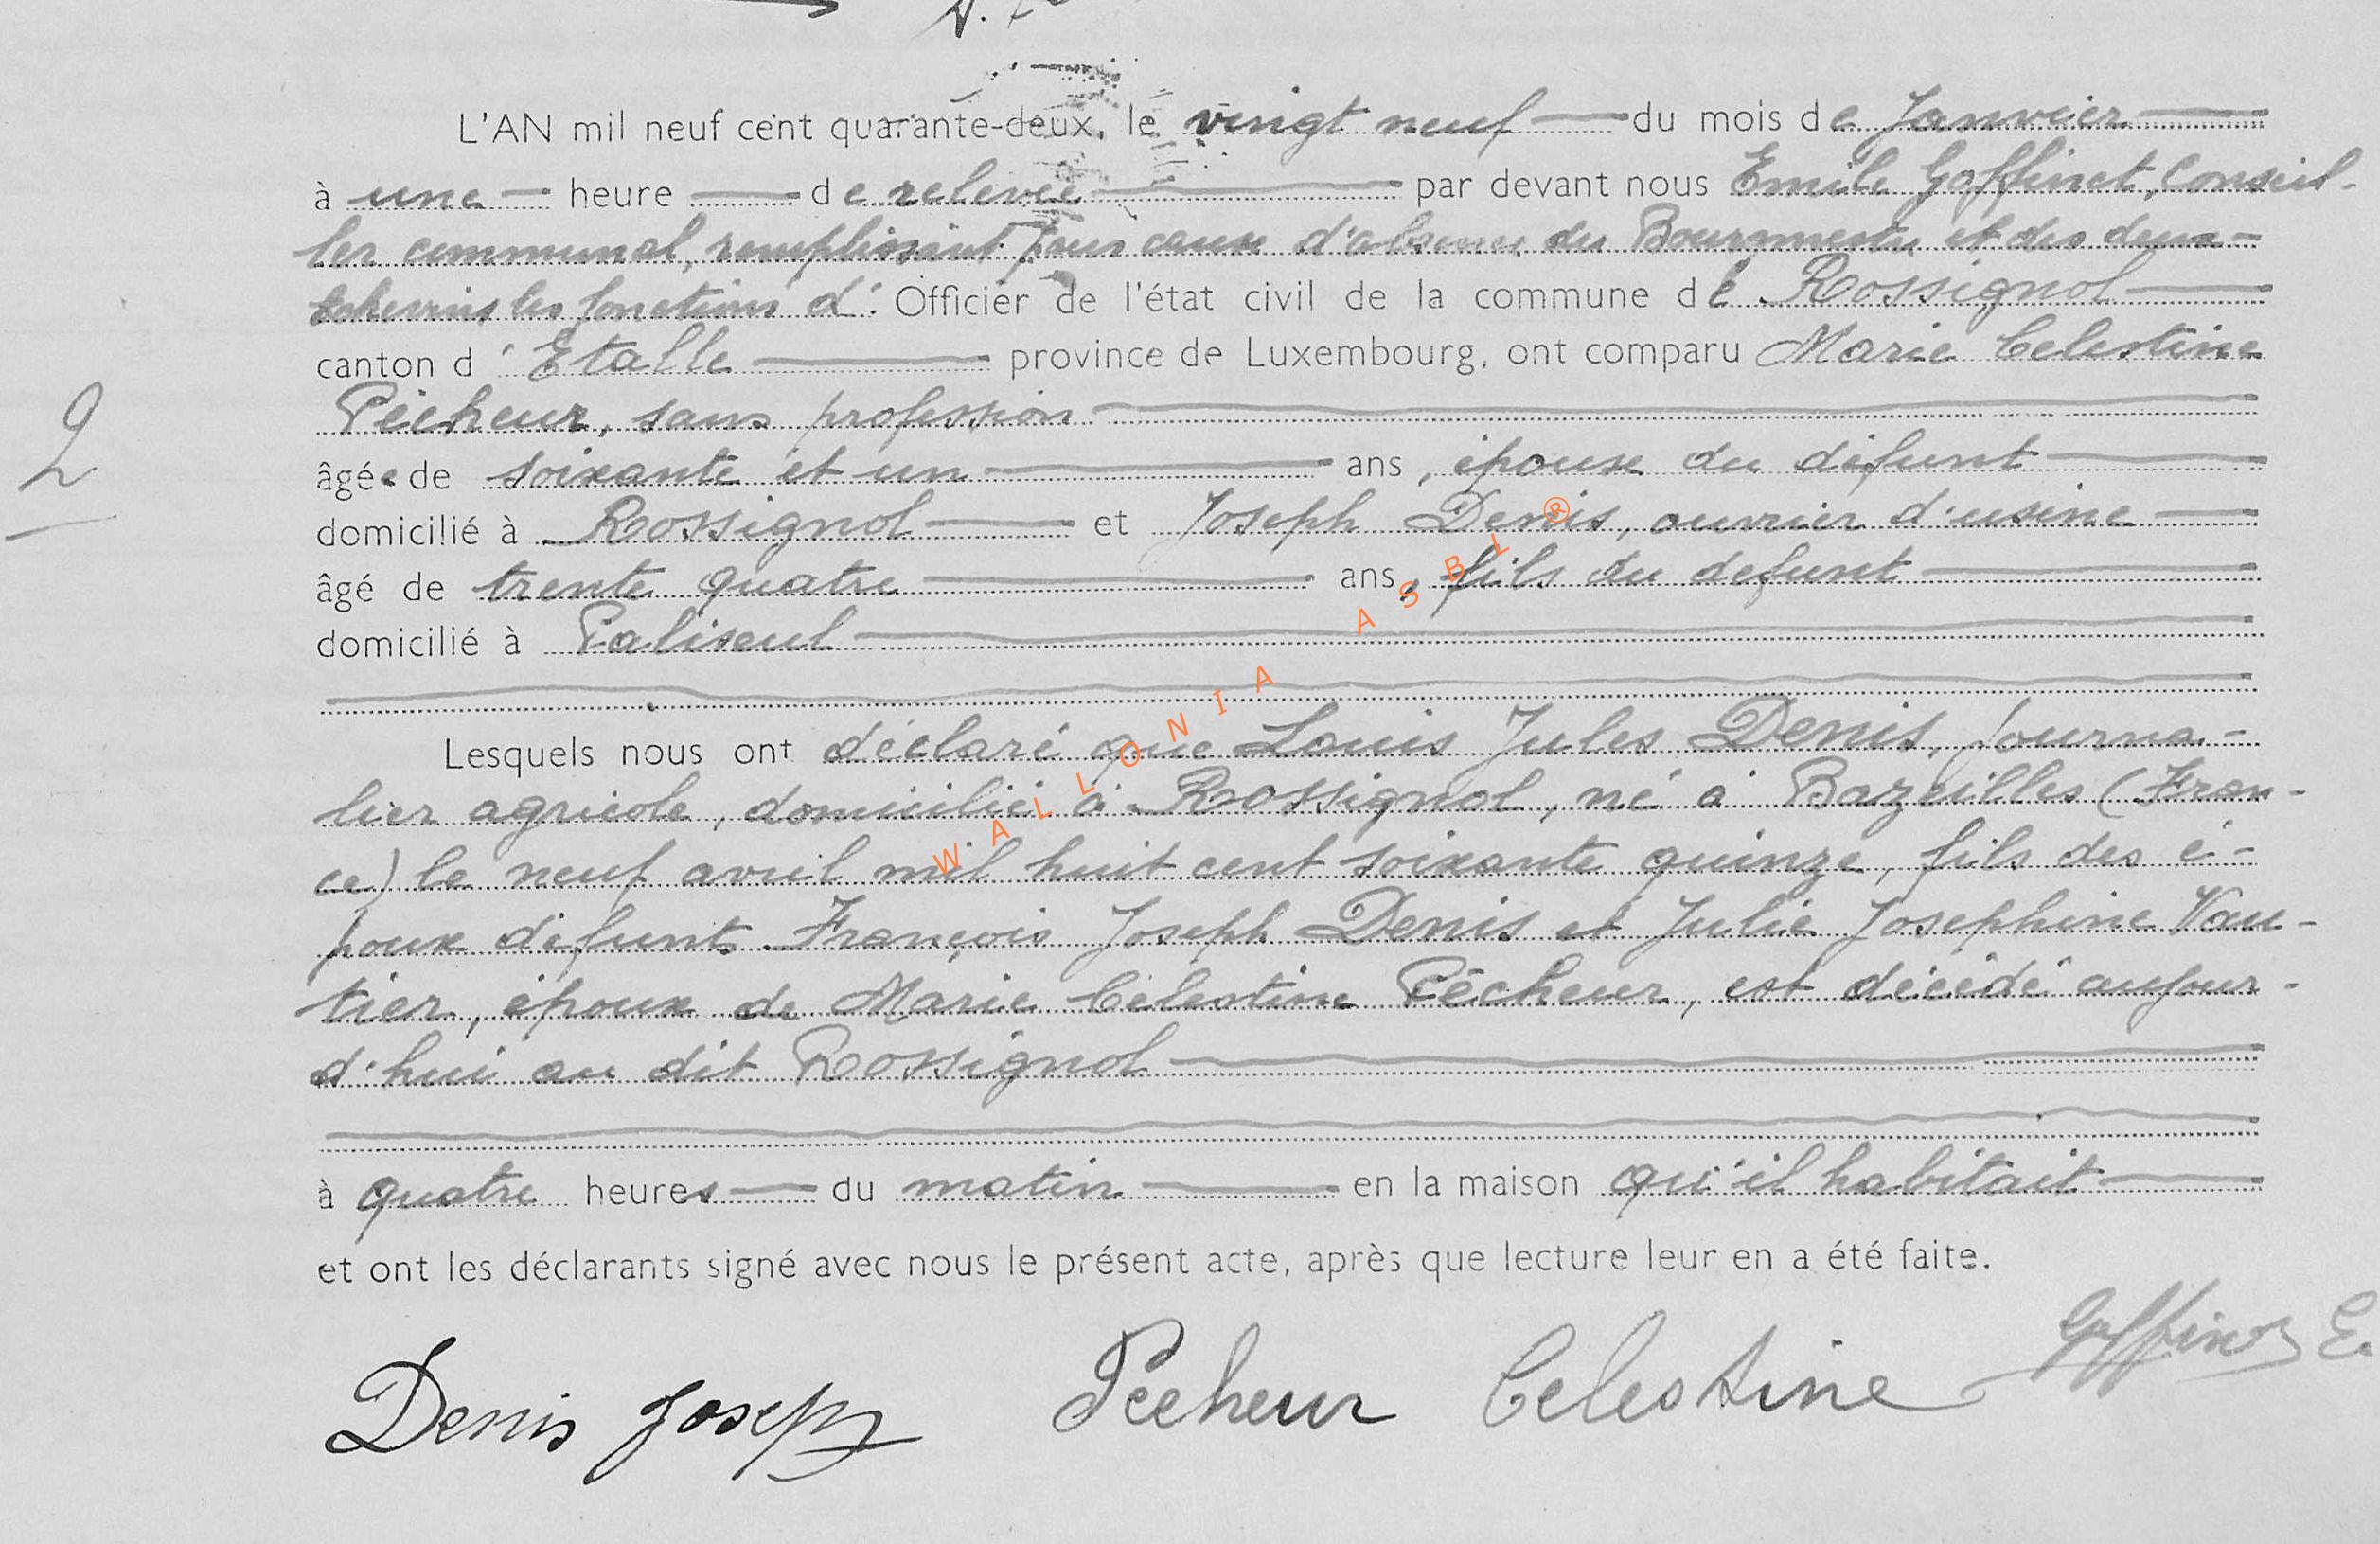 L'AN mil neuf cent quarante-deux, le vingt neuf du mois de Janvier
à une heure de relevée par devant nous Emile Goffinet, Conseil-
ler communal, remplissant pour cause d'absence du Bourgmestre et des deux
Echevins les fonctions d' Officier de l'état civil de la commune de Rossignol
canton d'Etalle province de Luxembourg, ont comparu Marie Celestine
Pêcheur, sans profession
âgée de soixante et un ans, épouse du défunt
domicilié à Rossignol et Joseph Denis, ouvrier d'usine
âgé de trente quatre ans, fils du defunt
domicilié à Paliseul
Lesquels nous ont déclaré que Louis Jules Denis, journa-
lier agricole, domicilié à Rossignol, né à Bazeilles (Fran-
ce) le neuf avril mil huit cent soixante quinze, fils des é-
poux défunts François Joseph Denis et Julie Josephine Vau-
tier, époux de Marie Célestine Pêcheur, est décédé aujour-
d'hui au dit Rossignol
à quatre heures du matin en la maison qu'il habitait
et ont les déclarants signé avec nous le présent acte, après que lecture leur en a été faite.
Denis Joseph Pecheur Celestine Goffinet E.
2
WALLONIA ASBL ®